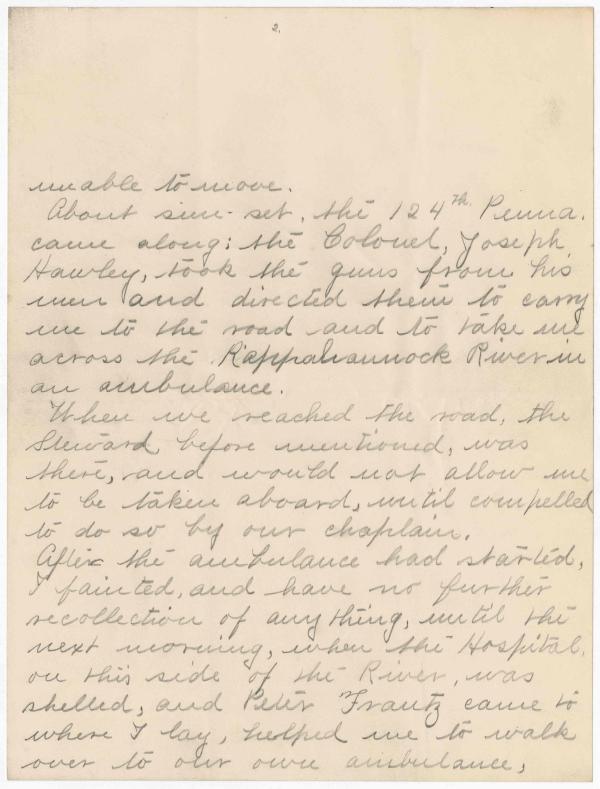 2.
unable to move.
About sun-set, the 124th Penna.
came along; the Colonel, Joseph
Hawley, took the guns from his
men and directed them to carry
me to the road and to take me
across the Rappahannock River in
an ambulance.
When we reached the road, the
Steward, before mentioned, was
there, and would not allow me
to be taken aboard, until compelled
to do so by our chaplain.
After the ambulance had started,
I fainted, and have no further
recollection of anything, until the
next morning, when the Hospital,
on this side of the River, was
shelled, and Peter Frantz came to
where I lay, helped me to walk
over to our own ambulance,